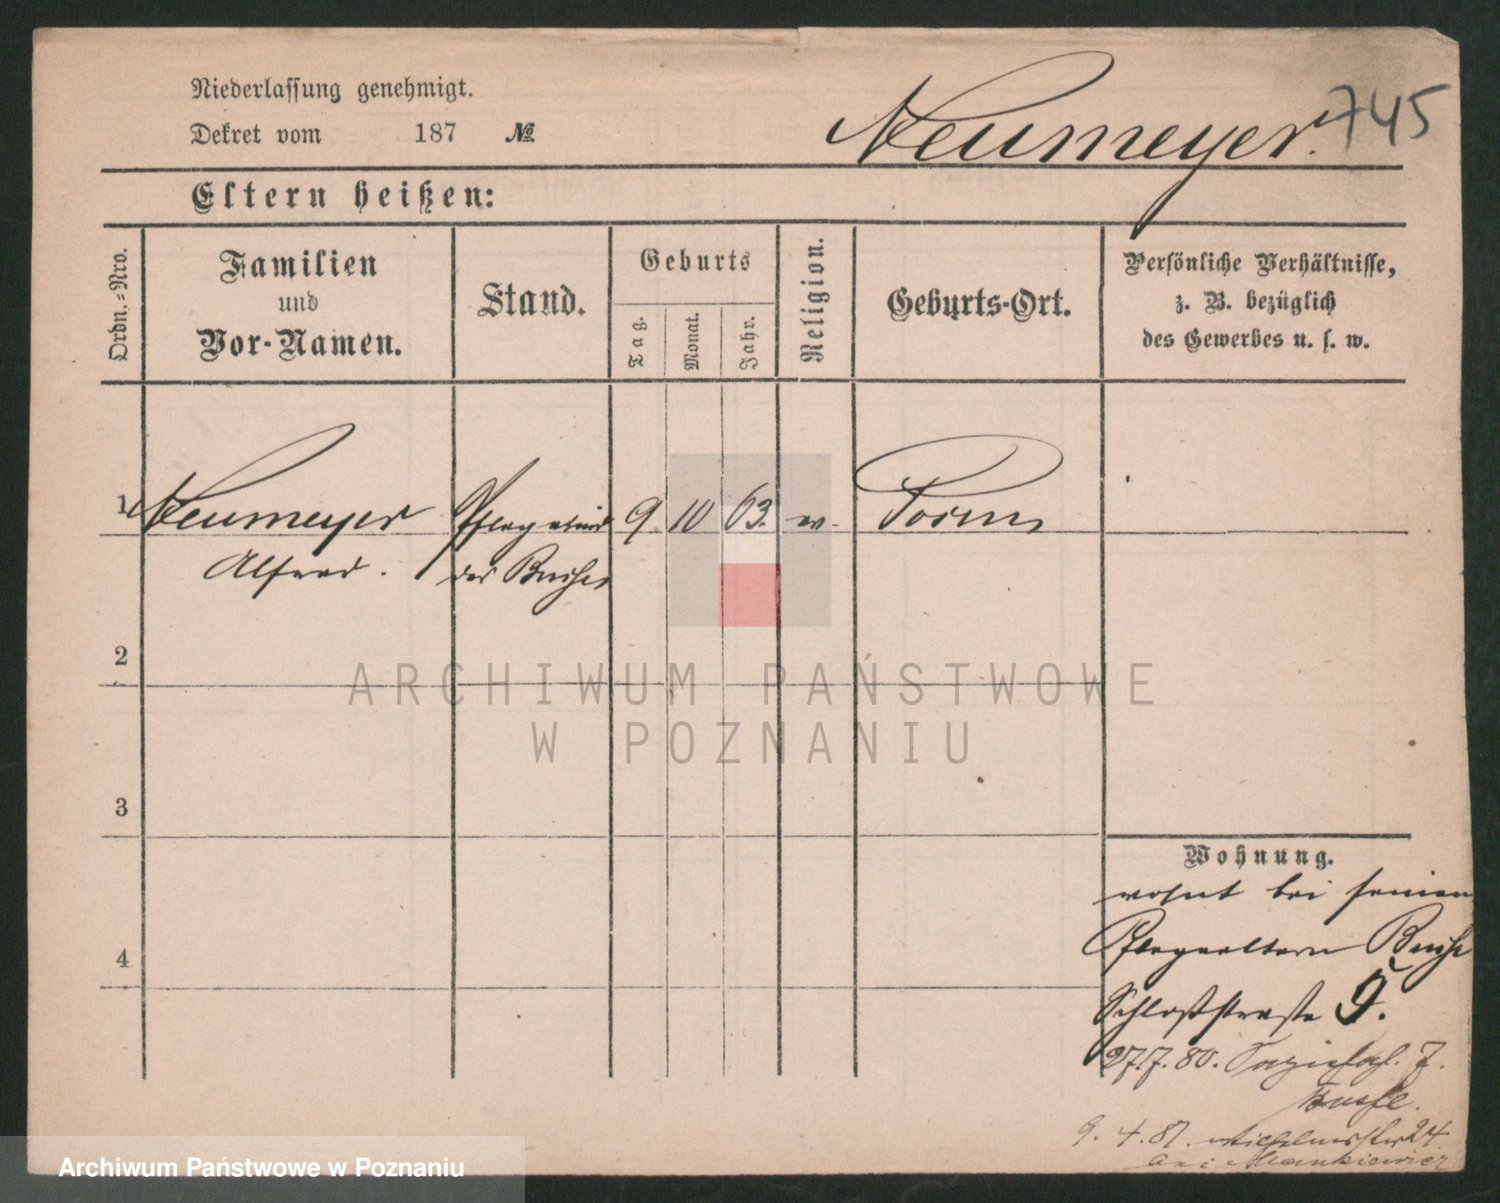 Niederlassung genehmigt.
Dekret vom 187 №
Neumeyer. 745
Eltern heißen:
Ordn.-Nro.
Familien
und
Vor-Namen.
Stand.
Geburts
Tag.
Monat.
Jahr.
Religion.
Geburts-Ort.
Persönliche Verhältnisse,
z. B. bezüglich
des Gewerbes u. s. w.
1 Neumeyer 9 10 63. Posen
Alfred.
2
3
4
Wohnung.
wohnt bei seinen
Pflegeeltern
Schloßstraße 5.
27.7.80. 7.
Busse.
9. 4. 81. Wilhelmsstr 24
bei Mankiewicz
ARCHIWUM PAŃSTWOWE
W POZNANIU
Archiwum Państwowe w Poznaniu